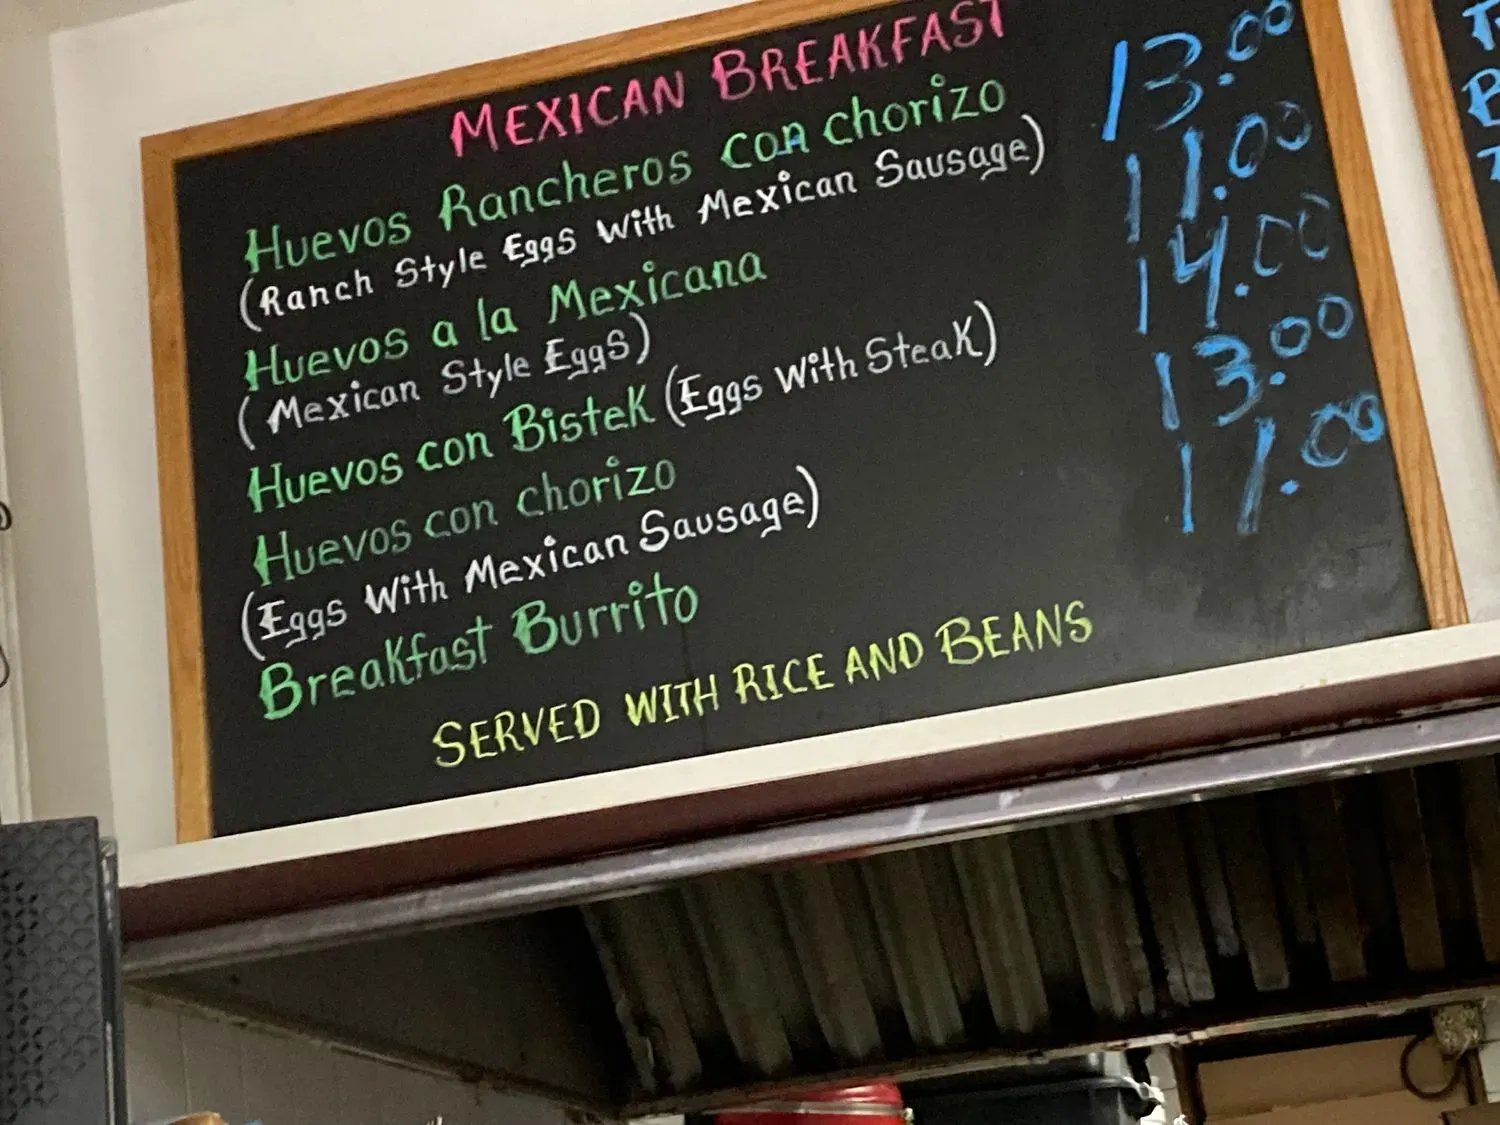 MEXICAN BREAKFAST
Huevos Rancheros con chorizo 13.00
(Ranch Style Eggs With Mexican Sausage)
Huevos a la Mexicana 11.00
(Mexican Style Eggs)
Huevos con Bistek (Eggs With Steak) 14.00
Huevos con chorizo 13.00
(Eggs With Mexican Sausage)
Breakfast Burrito 11.00
SERVED WITH RICE AND BEANS